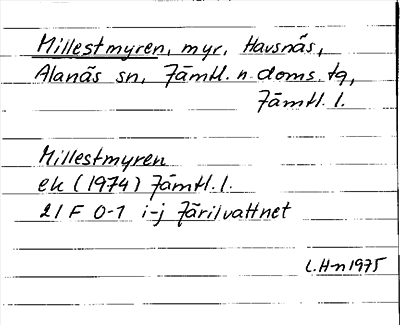 Millestmyren, myr, Havsnäs,
Alanäs sn, Jämtl. n. doms. tg,
Jämtl. l.
Millestmyren
ek (1974) Jämtl. l.
21 F 0-1 i-j Järilvattnet
L.H-n 1975